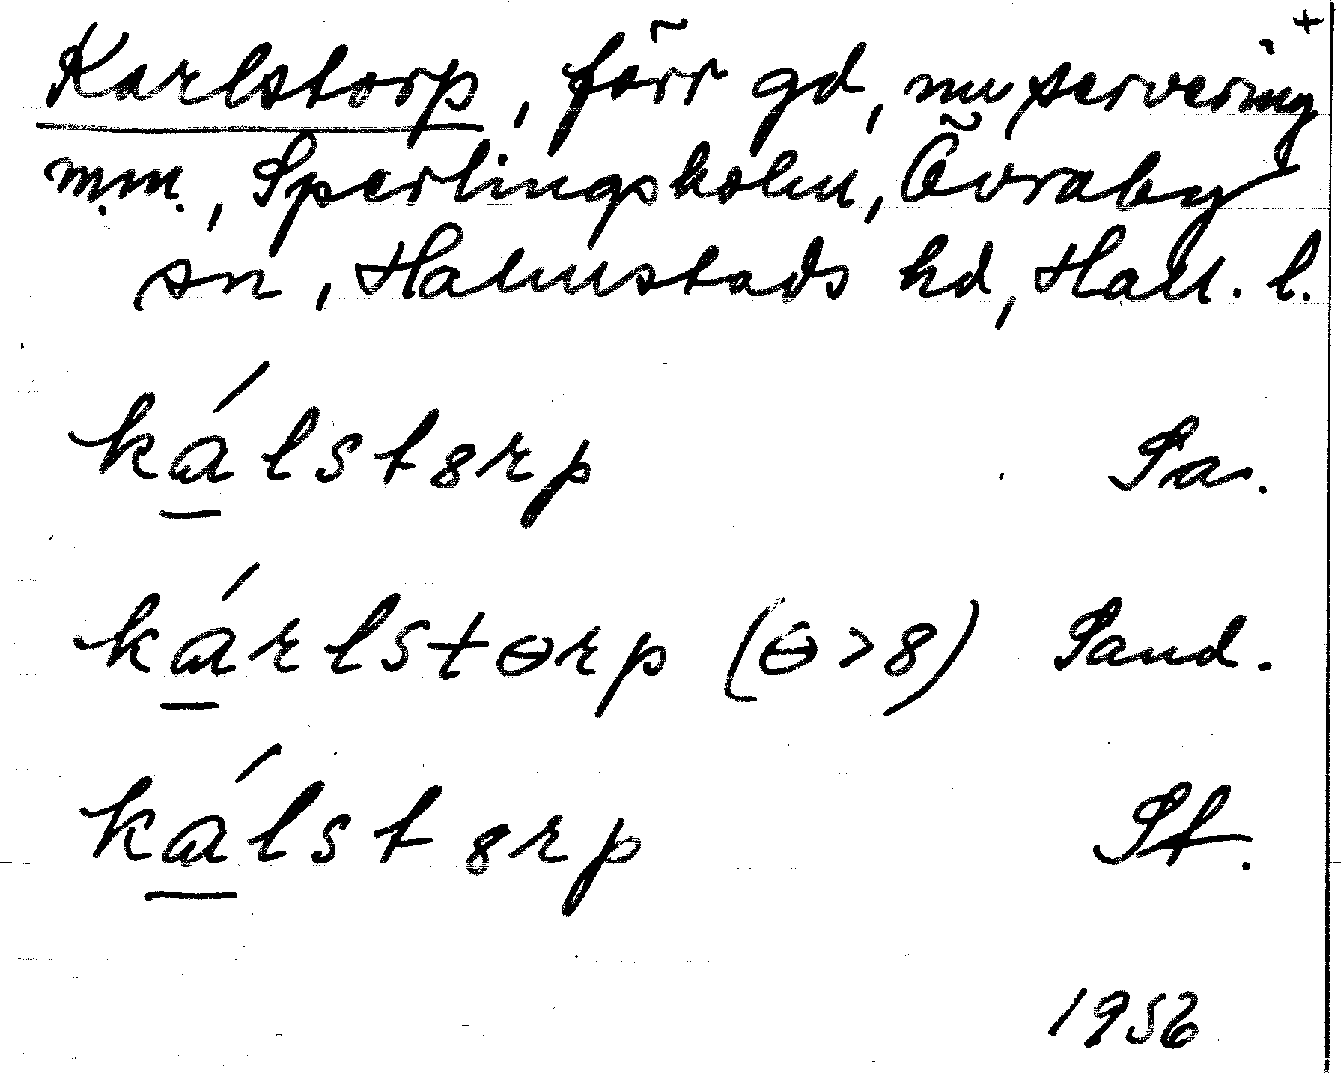 +
Karlstorp, förr gd, nu servering
m.m., Sperlingsholm, Övraby
sn, Halmstads hd, Hall. l.
ká̱lst8rp Sa.
ká̱rlstɵrp (ɵ>8) Sand.
ká̱lst8rp St.
1956